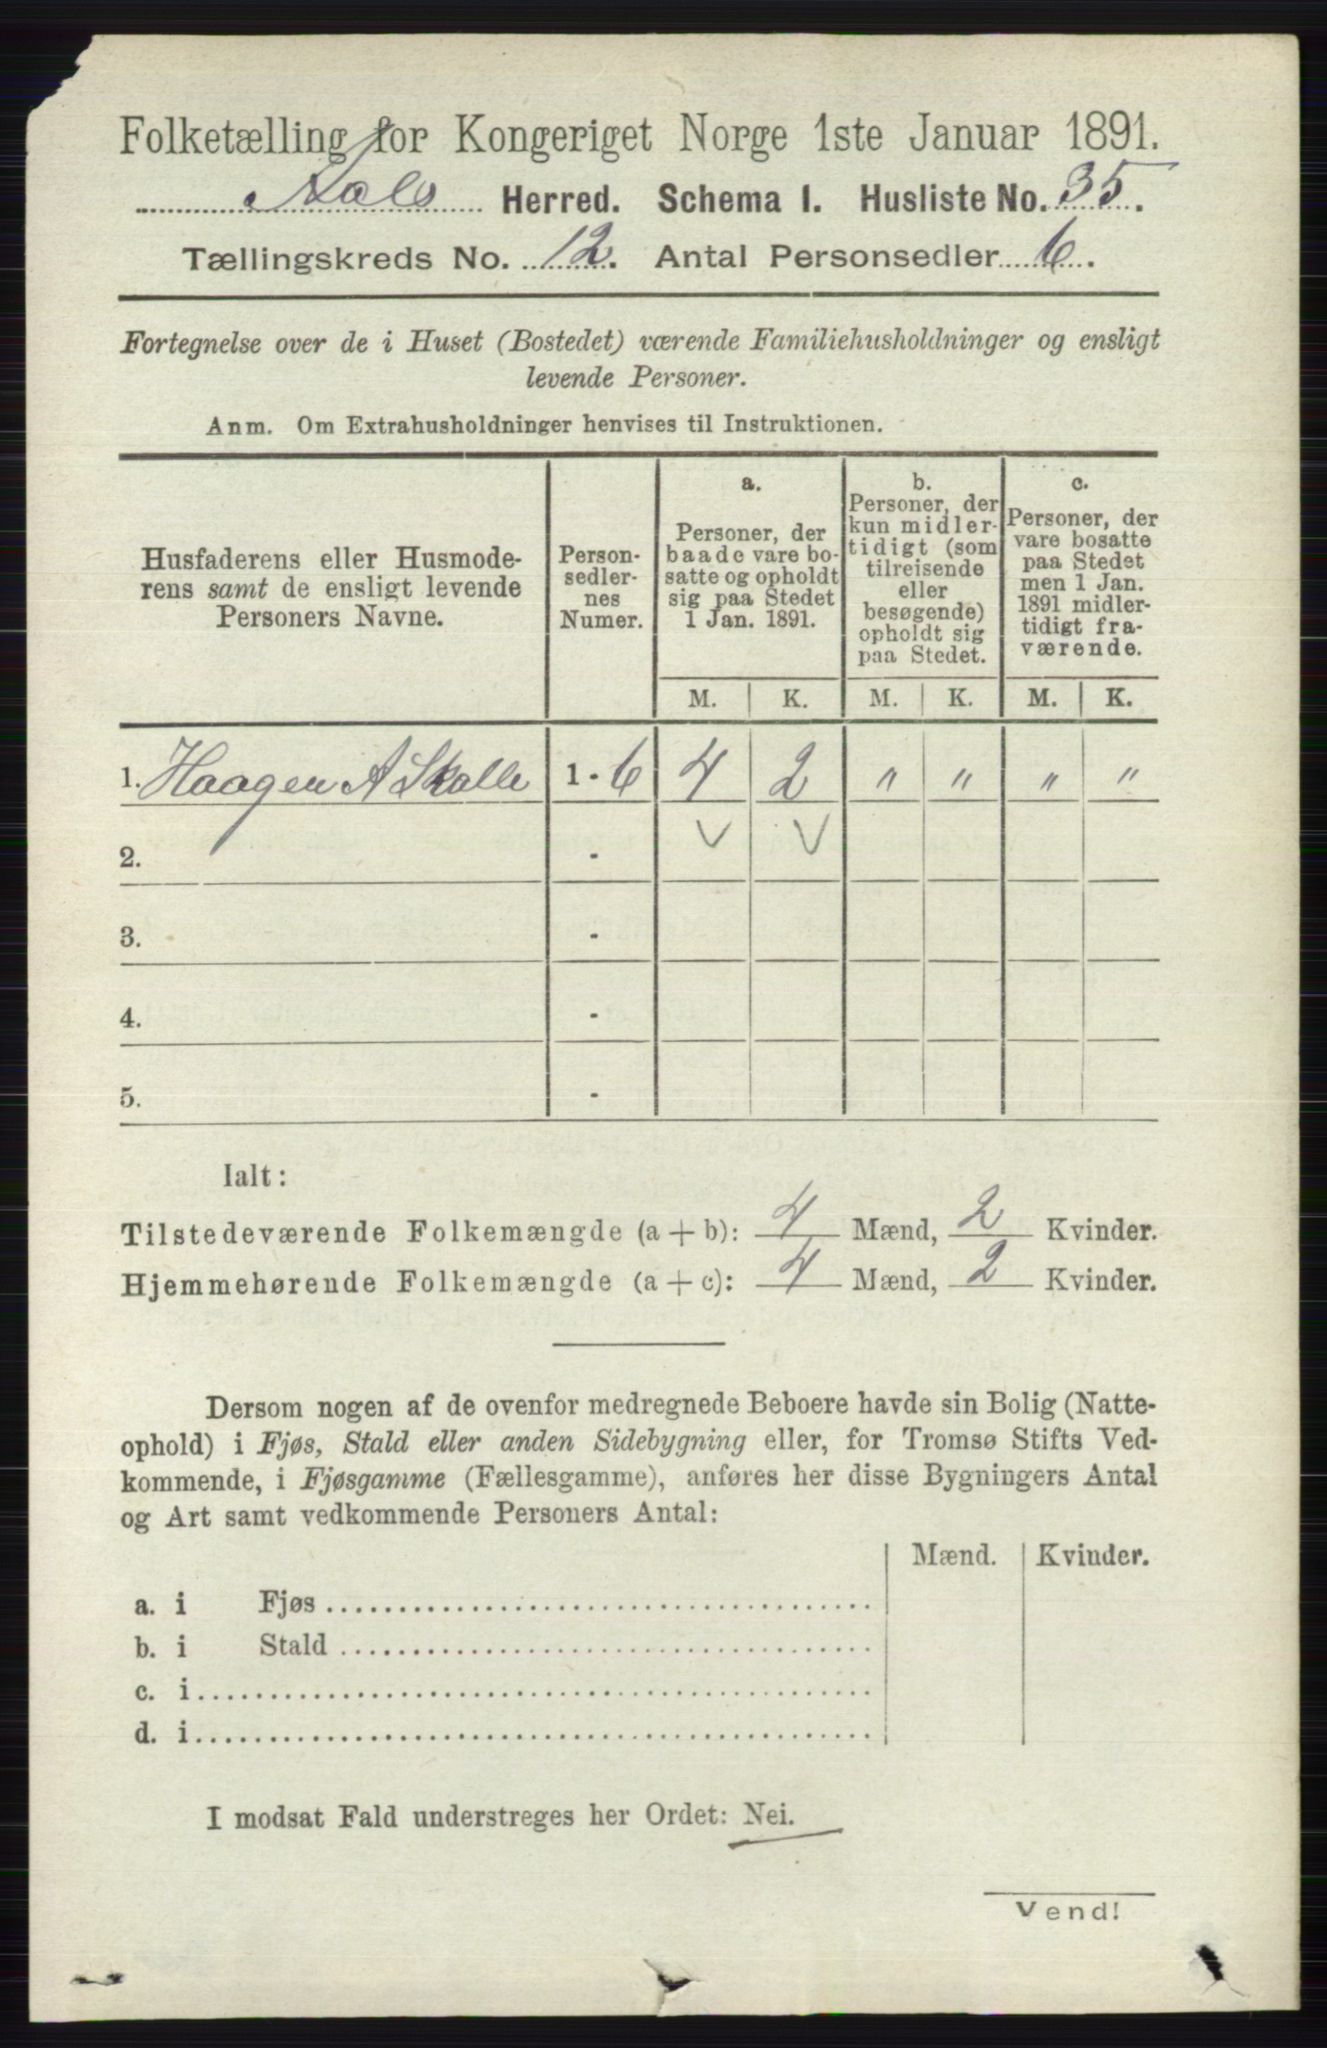 Folketælling for Kongeriget Norge 1ste Januar 1891.
Aals Herred. Schema I. Husliste No. 35.
Tællingskreds No. 12. Antal Personsedler 6.
Fortegnelse over de i Huset (Bostedet) værende Familiehusholdninger og ensligt
levende Personer.
Anm. Om Extrahusholdninger henvises til Instruktionen.
Husfaderens eller Husmode-
rens samt de ensligt levende
Personers Navne.
Person-
sedler-
nes
Numer.
a.
Personer, der
baade vare bo-
satte og opholdt
sig paa Stedet
1 Jan. 1891.
b.
Personer, der
kun midler-
tidigt (som
tilreisende
eller
besøgende)
opholdt sig
paa Stedet.
c.
Personer, der
vare bosatte
paa Stedet
men 1 Jan.
1891 midler-
tidigt fra-
værende.
M. K. M. K. M. K.
1. Haagen A Skalle 1 - 6 4 2 " " " "
2. - V V
3. -
4. -
5. -
Ialt:
Tilstedeværende Folkemængde (a + b): 4 Mænd, 2 Kvinder.
Hjemmehørende Folkemængde (a + c): 4 Mænd, 2 Kvinder.
Dersom nogen af de ovenfor medregnede Beboere havde sin Bolig (Natte-
ophold) i Fjøs, Stald eller anden Sidebygning eller, for Tromsø Stifts Ved-
kommende, i Fjøsgamme (Fællesgamme), anføres her disse Bygningers Antal
og Art samt vedkommende Personers Antal:
Mænd. Kvinder.
a. i Fjøs
b. i Stald
c. i
d. i
I modsat Fald understreges her Ordet: Nei.
Vend!